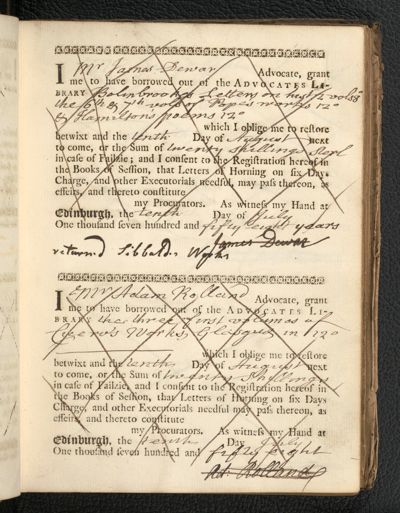 I Mr James Dewar Advocate, grant
me to have borrowed out of the ADVOCATES LI-
BRARY Bolinbrook's Letters on hist: 2 vols 8º
the 6th & 7th vols of Pope's works 12º
& Hamilton's poems 12º
which I oblige me to restore
betwixt and the tenth Day of August next
to come, or the Sum of twenty shillings Sterl
in case of Failzie; and I consent to the Registration hereof in
the Books of Session, that Letters of Horning on six Days
Charge, and other Executorials needful, may pass thereon, as
effeirs, and thereto constitute
my Procurators. As witness my Hand at
Edinburgh, the tenth Day of July
One thousand seven hundred and fifty eight years
James Dewar
returned Sibbalds Works
I Mr Adam Rolland Advocate, grant
me to have borrowed out of the ADVOCATES LI-
BRARY the three first volumes of
Cicero's Works Glasgow in 12º
which I oblige me to restore
betwixt and the tenth Day of August next
to come, or the Sum of Shillings
in case of Failzie, and I consent to the Registration hereof in
the Books of Session, that Letters of Horning on six Days
Charge, and other Executorials needful may pass thereon, as
effeirs, and thereto constitute
my Procurators. As witness my Hand at
Edinburgh, the tenth Day July
One thousand seven hundred and fifty eight
Ad: Rolland